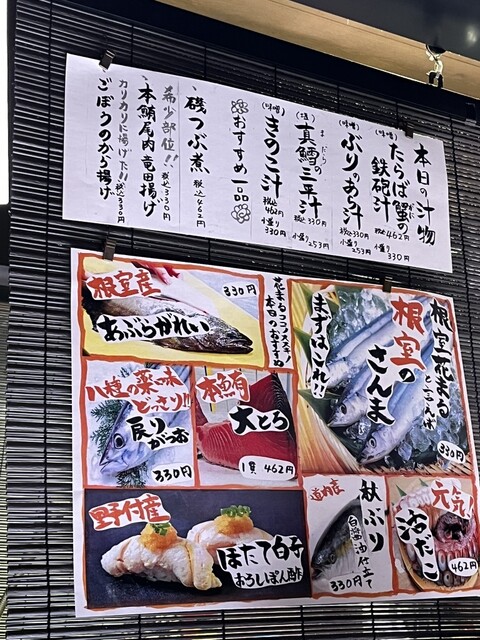 本日の汁物
(味噌)
たらば蟹の
鉄砲汁
税込462円
小盛り330円
(味噌)
ぶりのあら汁
税込330円
小盛り253円
(塩)
真鱈の三平汁
まだら
税込330円
小盛り253円
(味噌)
きのこ汁
税込462円
小盛り330円
おすすめ一品
磯つぶ煮
税込462円
希少部位!!
本鮪尾肉竜田揚げ
税込330円
カリカリに揚げ下!!
ごぼうのから揚げ
税込330円
根室花まる
といえば
根室の
さんま
まずはこれ!!
330円
花まるココノススキノ
本日のおすすめ
根室産
あぶらがれい
330円
八種の薬味
どっさり!!
戻りがつお
330円
本鮪
大とろ
1貫462円
野付産
ほたて白子
おろしぽん酢
道内産
秋ぶり
白醤油仕立て
330円
元気!
活だこ
462円